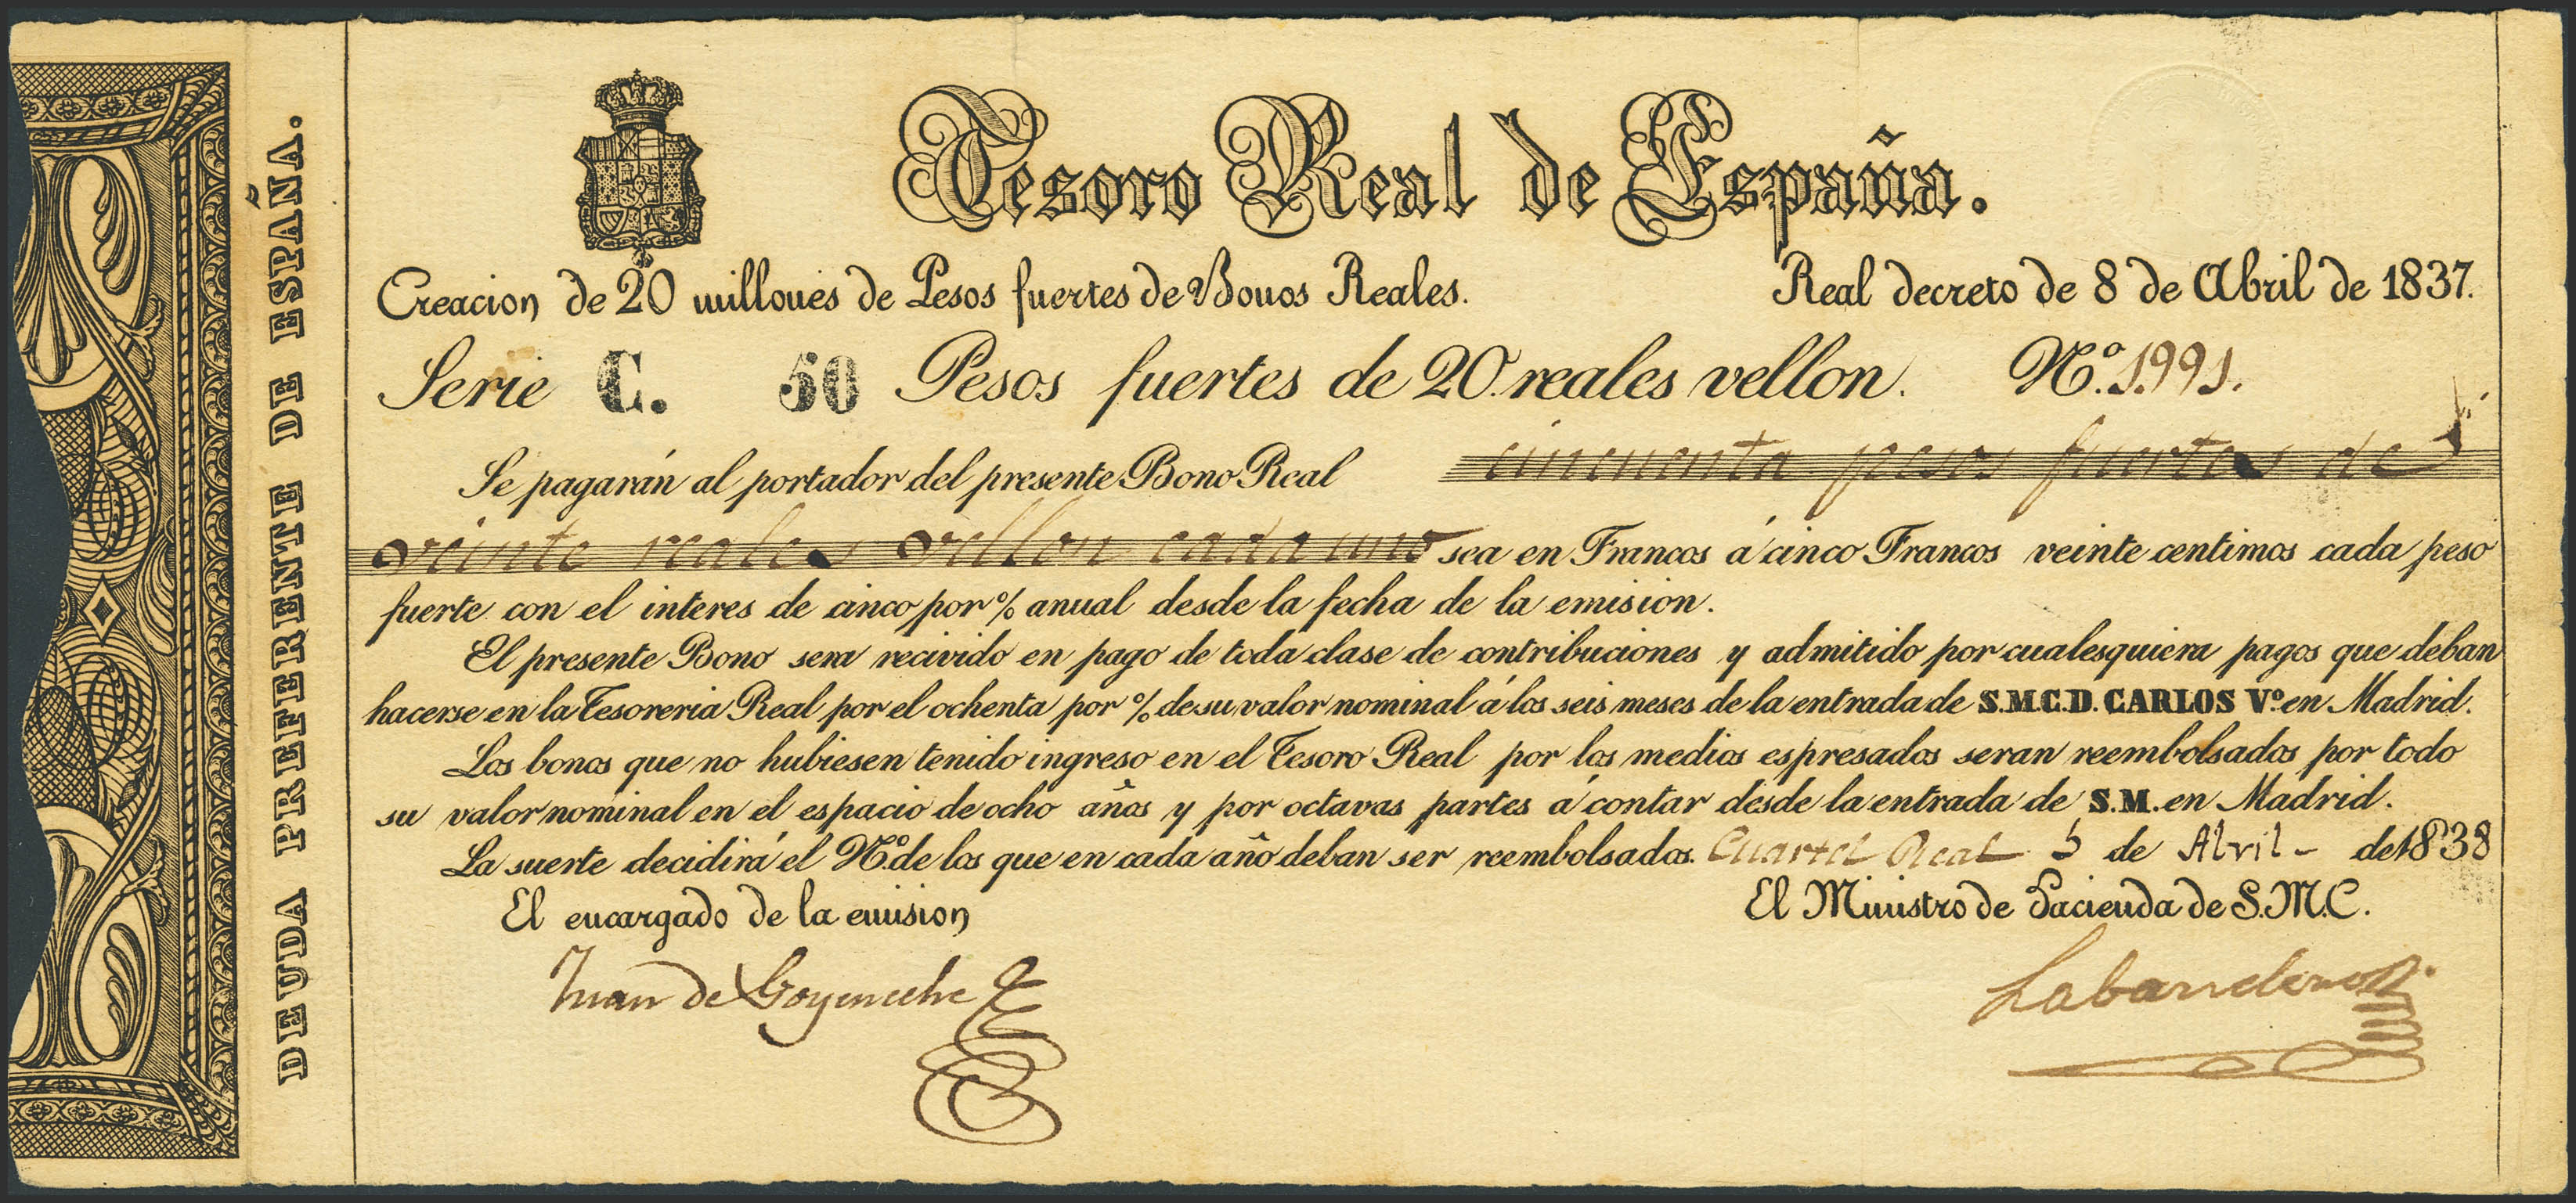 DEUDA PREFERENTE DE ESPAÑA.
Tesoro Real de España.
Creacion de 20 millones de Pesos fuertes de Bonos Reales. Real decreto de 8 de Abril de 1837.
Serie C. 50 Pesos fuertes de 20 reales vellon. Nº. 1.991.
Se pagarán al portador del presente Bono Real cincuenta pesos fuertes de
veinte reales vellon cada uno sea en Francos á cinco Francos veinte centimos cada peso
fuerte con el interes de cinco por % anual desde la fecha de la emision.
El presente Bono sera recivido en pago de toda clase de contribuciones y admitido por cualesquiera pagos que deban
hacerse en la Tesoreria Real por el ochenta por % de su valor nominal á los seis meses de la entrada de S.M.C.D. CARLOS Vº. en Madrid.
Los bonos que no hubiesen tenido ingreso en el Tesoro Real por los medios espresados seran reembolsados por todo
su valor nominal en el espacio de ocho años y por octavas partes á contar desde la entrada de S.M. en Madrid.
La suerte decidirá el Nº. de los que en cada año deban ser reembolsados. Cuartel Real 5 de Abril - de 1838
El encargado de la emision El Ministro de Hacienda de S.M.C.
Juan de Goyeneche Labandero